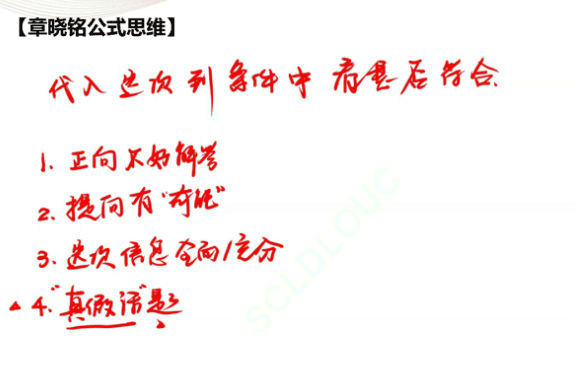 【章晓铭公式思维】
代入选项到条件中看是否符合
1. 正向不好解答
2. 提问有"可能"
3. 选项信息全面/充分
4. "真假话"题
SCLDLOUC